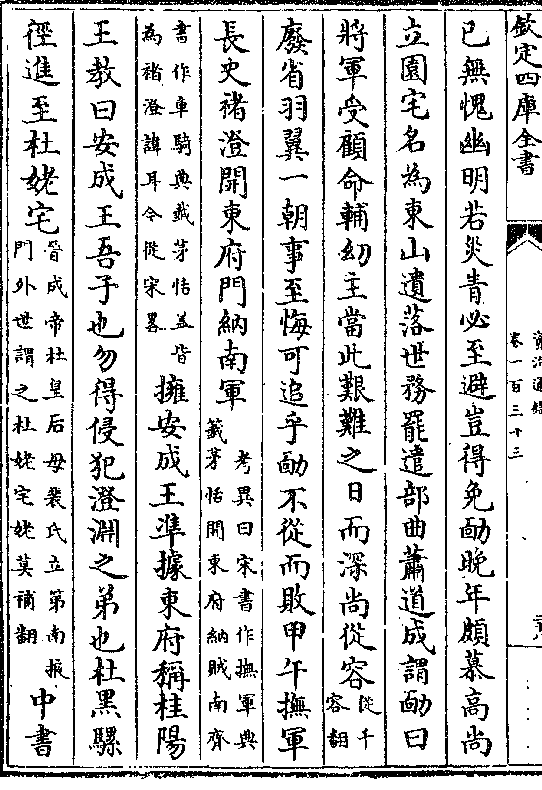 欽定四庫全書
資治通鑑
卷一百三十三
已無愧幽明若災眚必至避豈得免勔晚年頗慕高尚
立園宅名為東山遺落世務罷遣部曲蕭道成謂勔曰
將軍受顧命輔幼主當此艱難之日而深尚從容從千容翻
廢省羽翼一朝事至悔可追乎勔不從而敗甲午撫軍
長史褚澄開東府門納南軍考異曰宋書作撫軍典籖茅恬開東府納賊南齊
書作車騎典籖茅恬葢皆為褚澄諱耳今從宋畧擁安成王準據東府稱桂陽
王教曰安成王吾子也勿得侵犯澄淵之弟也杜黑騾
徑進至杜姥宅晉成帝杜皇后母裴氏立第南掖門外世謂之杜姥宅姥莫補翻中書